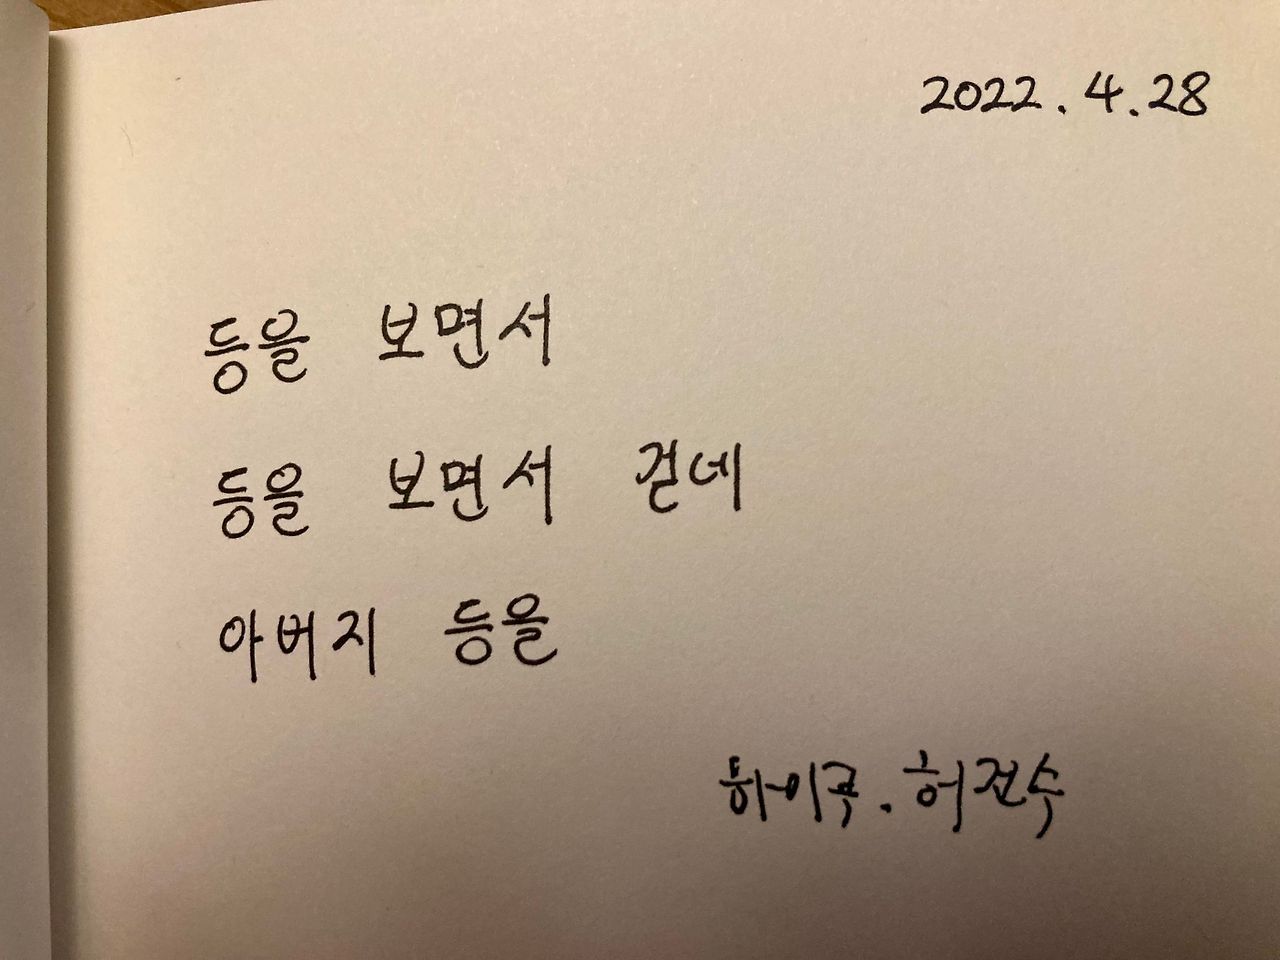 2022.4.28
등을 보면서
등을 보면서 걷네
아버지 등을
하이쿠. 허전수